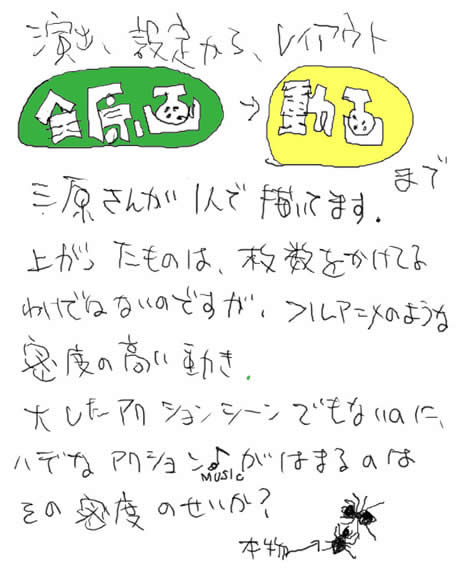 演出、設定から、レイアウト
全原画→動画
まで
三原さんが1人で描いてます.
上がったものは、枚数をかけてる
わけではないのですが、フルアニメのような
密度の高い動き.
大したアクションシーンでもないのに、
ハデなアクション♪がはまるのは
MUSIC
その密度のせいか?
本物→